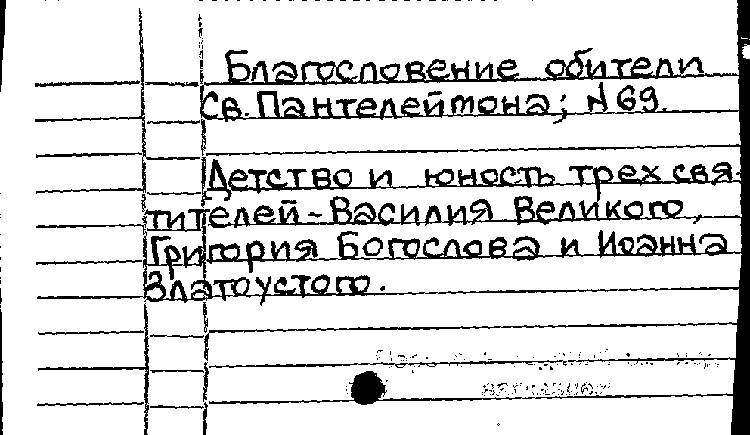 Благословение обители
Св. Пантелеймона; N 69.
Детство и юность трех свя-
тителей - Василия Великого,
Григория Богослова и Иоанна
Златоустого.